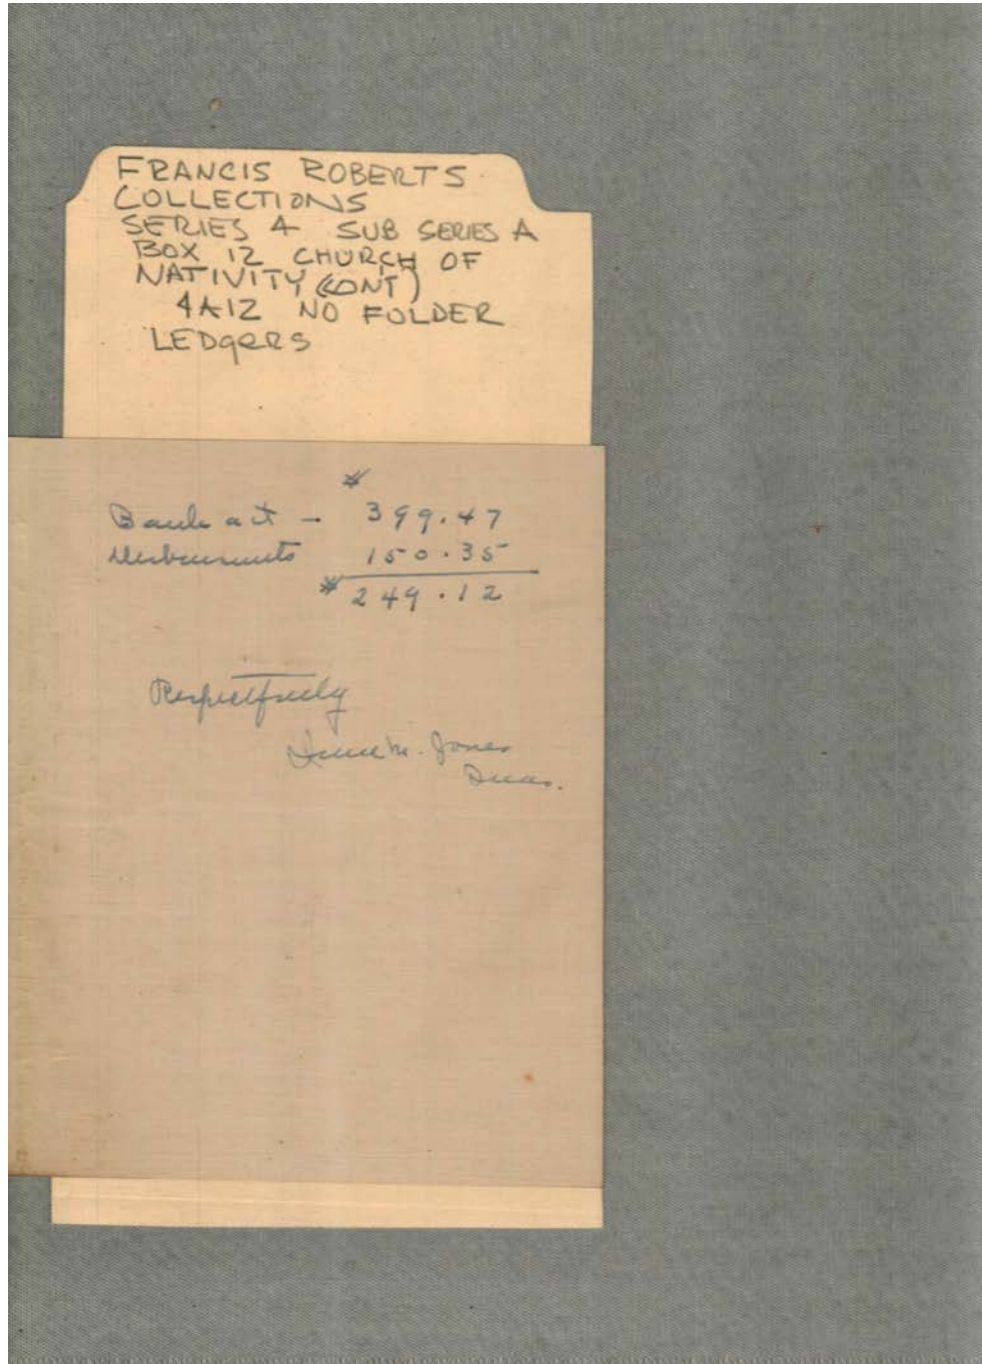 FRANCIS ROBERTS
COLLECTIONS
SERIES 4 SUB SERIES A
BOX 12 CHURCH OF
NATIVITY (CONT)
4A12 NO FOLDER
LEDGERS
$
Bank act - 399.47
Disbursments 150.35
$ 249.12
Respectfully
M. Jones
Treas.